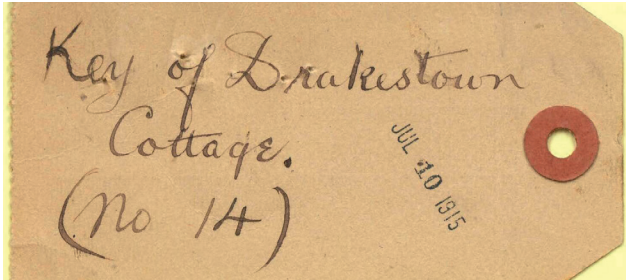 Key of Drakestown
Cottage.
(No 14)
JUL 10 1915